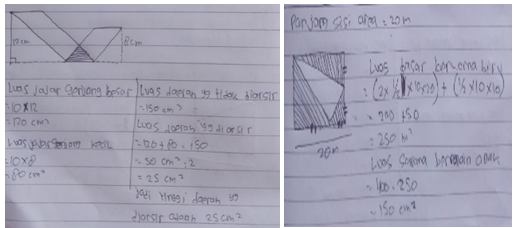 12 cm
8 cm
Luas jajar genjang besar
= 10 x 12
= 120 cm²
Luas jajar genjang kecil
= 10 x 8
= 80 cm²
Luas daerah yg tidak diarsir
= 150 cm²
Luas daerah yg diarsir
= 120 + 80 - 150
= 50 cm : 2
= 25 cm²
Jadi daerah yg
diarsir adalah 25 cm²
Panjang sisi area = 20 m
20 m
Luas dasar berwarna biru
= (2 x ½ x 10 x 20) + (½ x 10 x 10)
= 200 + 50
= 250 m²
Luas sarana bermain anak
= 400 - 250
= 150 cm²